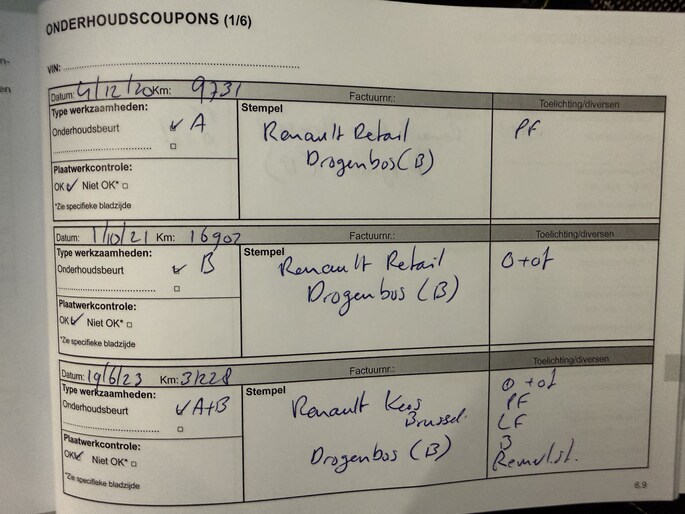 ONDERHOUDSCOUPONS (1/6)
VIN:
Datum: 4/12/20 Km: 9731 Factuurnr.: Toelichting/diversen
Type werkzaamheden: Stempel
Onderhoudsbeurt A Renault Retail PF
Drogenbos (B)
Plaatwerkcontrole:
OK Niet OK*
*Zie specifieke bladzijde
Datum: 1/10/21 Km: 16907 Factuurnr.: Toelichting/diversen
Type werkzaamheden: Stempel
Onderhoudsbeurt B Renault Retail O+of
Drogenbos (B)
Plaatwerkcontrole:
OK Niet OK*
*Zie specifieke bladzijde
Datum: 19/6/23 Km: 31228 Factuurnr.: Toelichting/diversen
Type werkzaamheden: Stempel O+of
Onderhoudsbeurt A+B Renault PF
Brussel. LF
Plaatwerkcontrole:
OK Niet OK* Drogenbos (B) Remvlst.
*Zie specifieke bladzijde
6.9